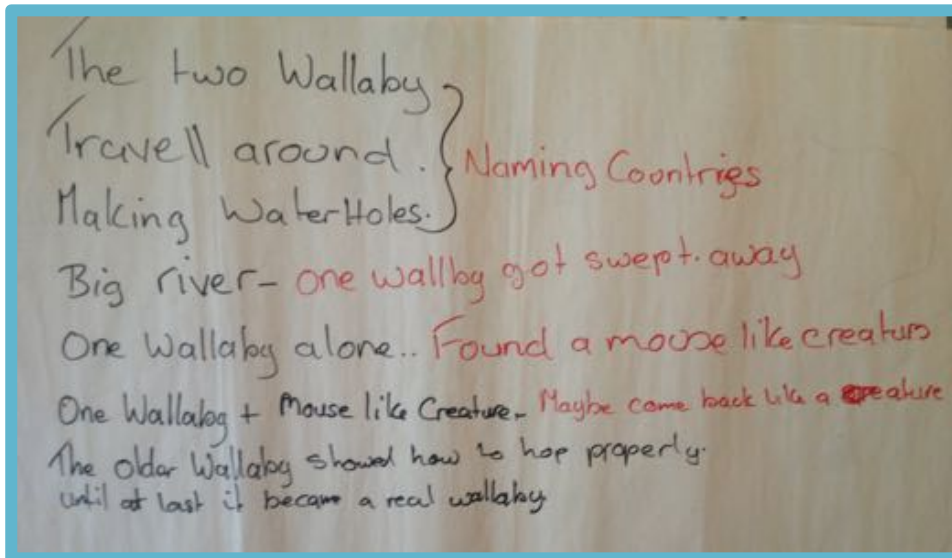 The two Wallaby
Travell around.
Making WaterHoles.
Naming Countries
Big river - one wallby got swept. away
One Wallaby alone.. Found a mouse like creature
One Wallaby + Mouse like Creature - Maybe come back like a creature
The older Wallaby showed how to hop properly.
until at last it became a real wallaby